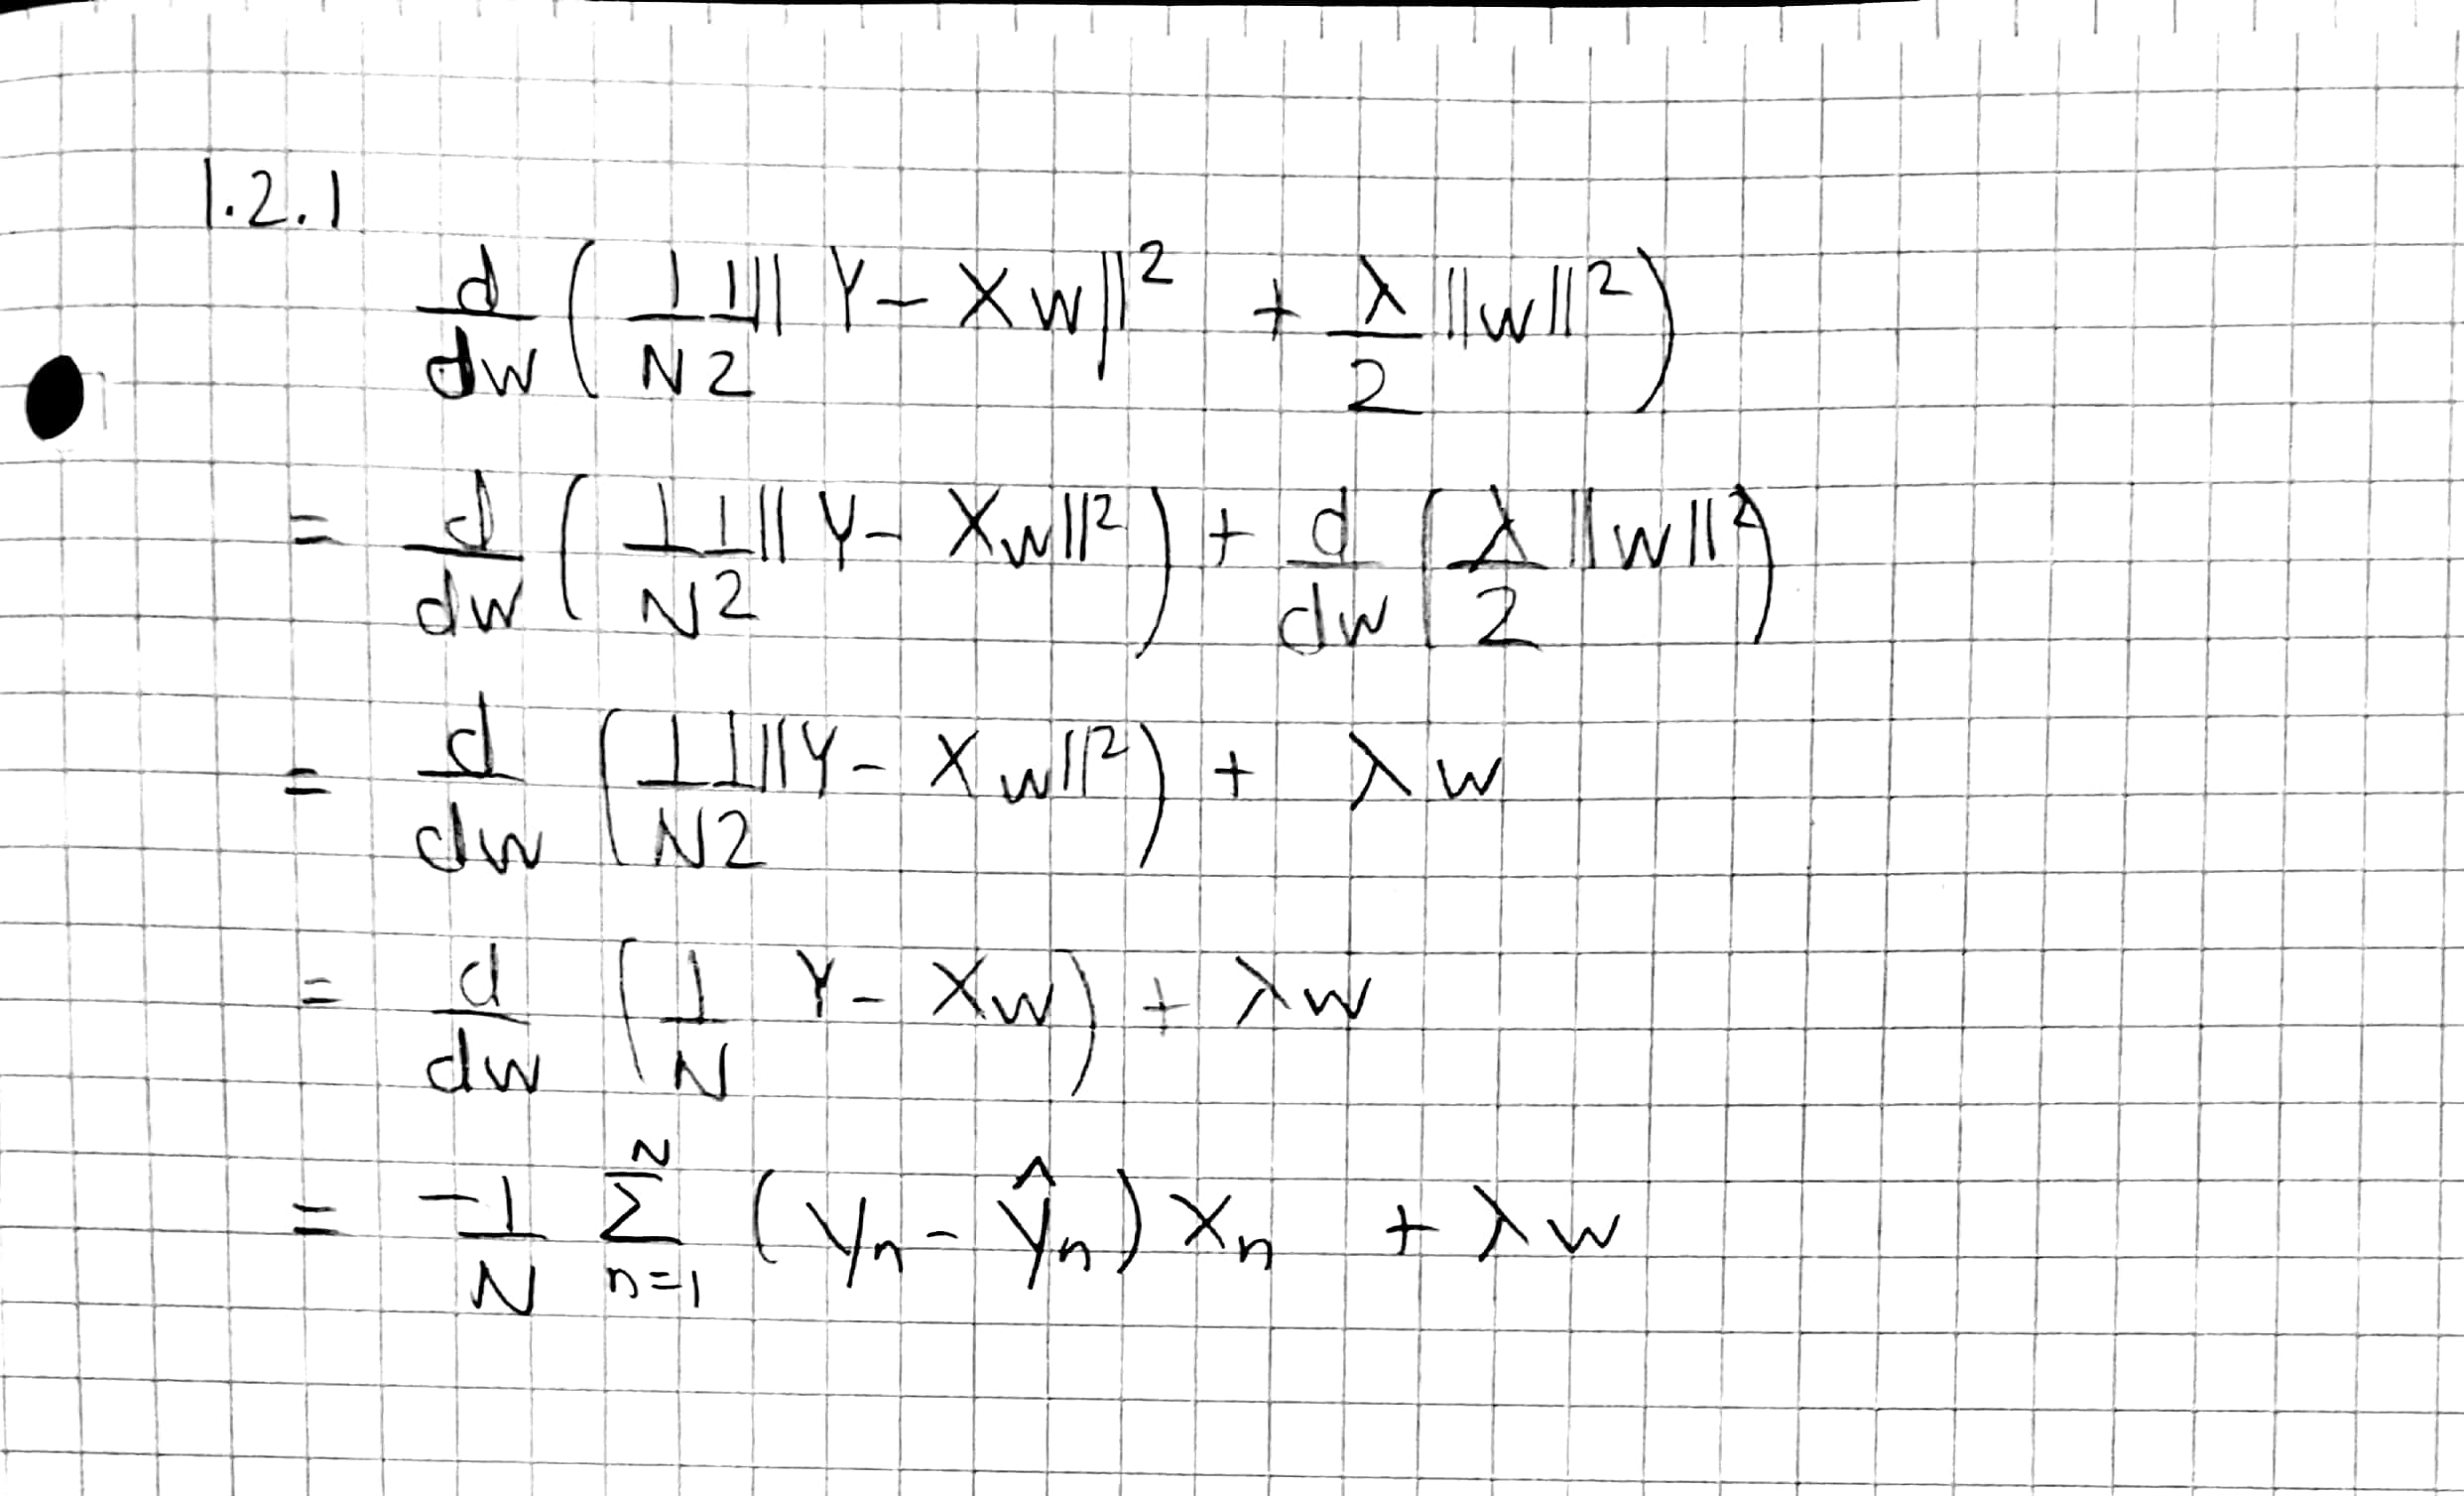 1.2.1
d/dw ( 1/N 1/2 || Y - Xw ||² + λ/2 ||w||² )
= d/dw ( 1/N 1/2 || Y - Xw ||² ) + d/dw ( λ/2 ||w||² )
= d/dw ( 1/N 1/2 || Y - Xw ||² ) + λw
= d/dw ( 1/N Y - Xw ) + λw
= -1/N Σ_{n=1}^{N} ( yₙ - ŷₙ ) xₙ + λw